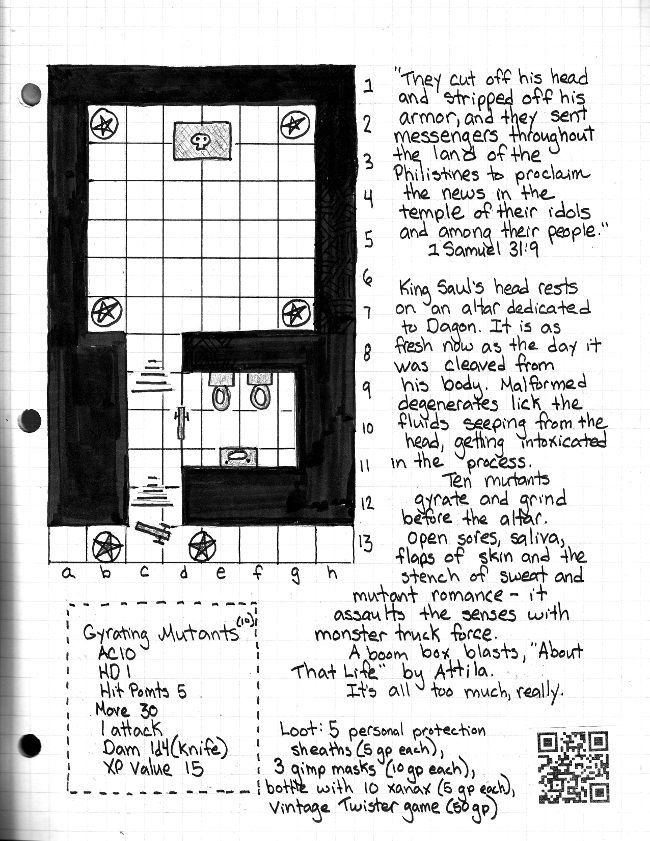 "They cut off his head
and stripped off his
armor, and they sent
messengers throughout
the land of the
Philistines to proclaim
the news in the
temple of their idols
and among their people."
1 Samuel 31:9
King Saul's head rests
on an altar dedicated
to Dagon. It is as
fresh now as the day it
was cleaved from
his body. Malformed
degenerates lick the
fluids seeping from the
head, getting intoxicated
in the process.
Ten mutants
gyrate and grind
before the altar.
Open sores, saliva,
flaps of skin and the
stench of sweat and
mutant romance - it
assaults the senses with
monster truck force.
A boom box blasts, "About
That Life" by Attila.
It's all too much, really.
1
2
3
4
5
6
7
8
9
10
11
12
13
a b c d e f g h
Gyrating Mutants (10)
AC10
HD 1
Hit Points 5
Move 30
1 attack
Dam 1d4 (Knife)
XP Value 15
Loot: 5 personal protection
sheaths (5 gp each),
3 gimp masks (10 gp each),
bottle with 10 xanax (5 gp each),
Vintage Twister game (50 gp)